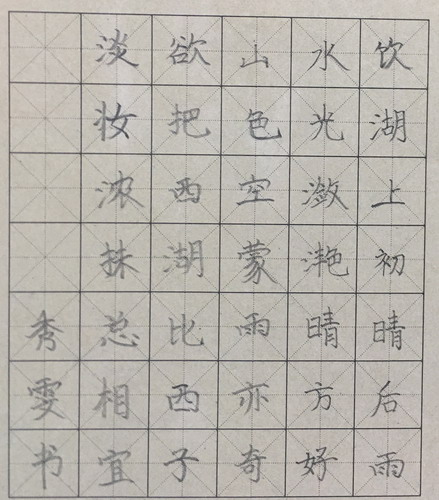 饮湖上初晴后雨
水光潋滟晴方好
山色空蒙雨亦奇
欲把西湖比西子
淡妆浓抹总相宜
秀雯书